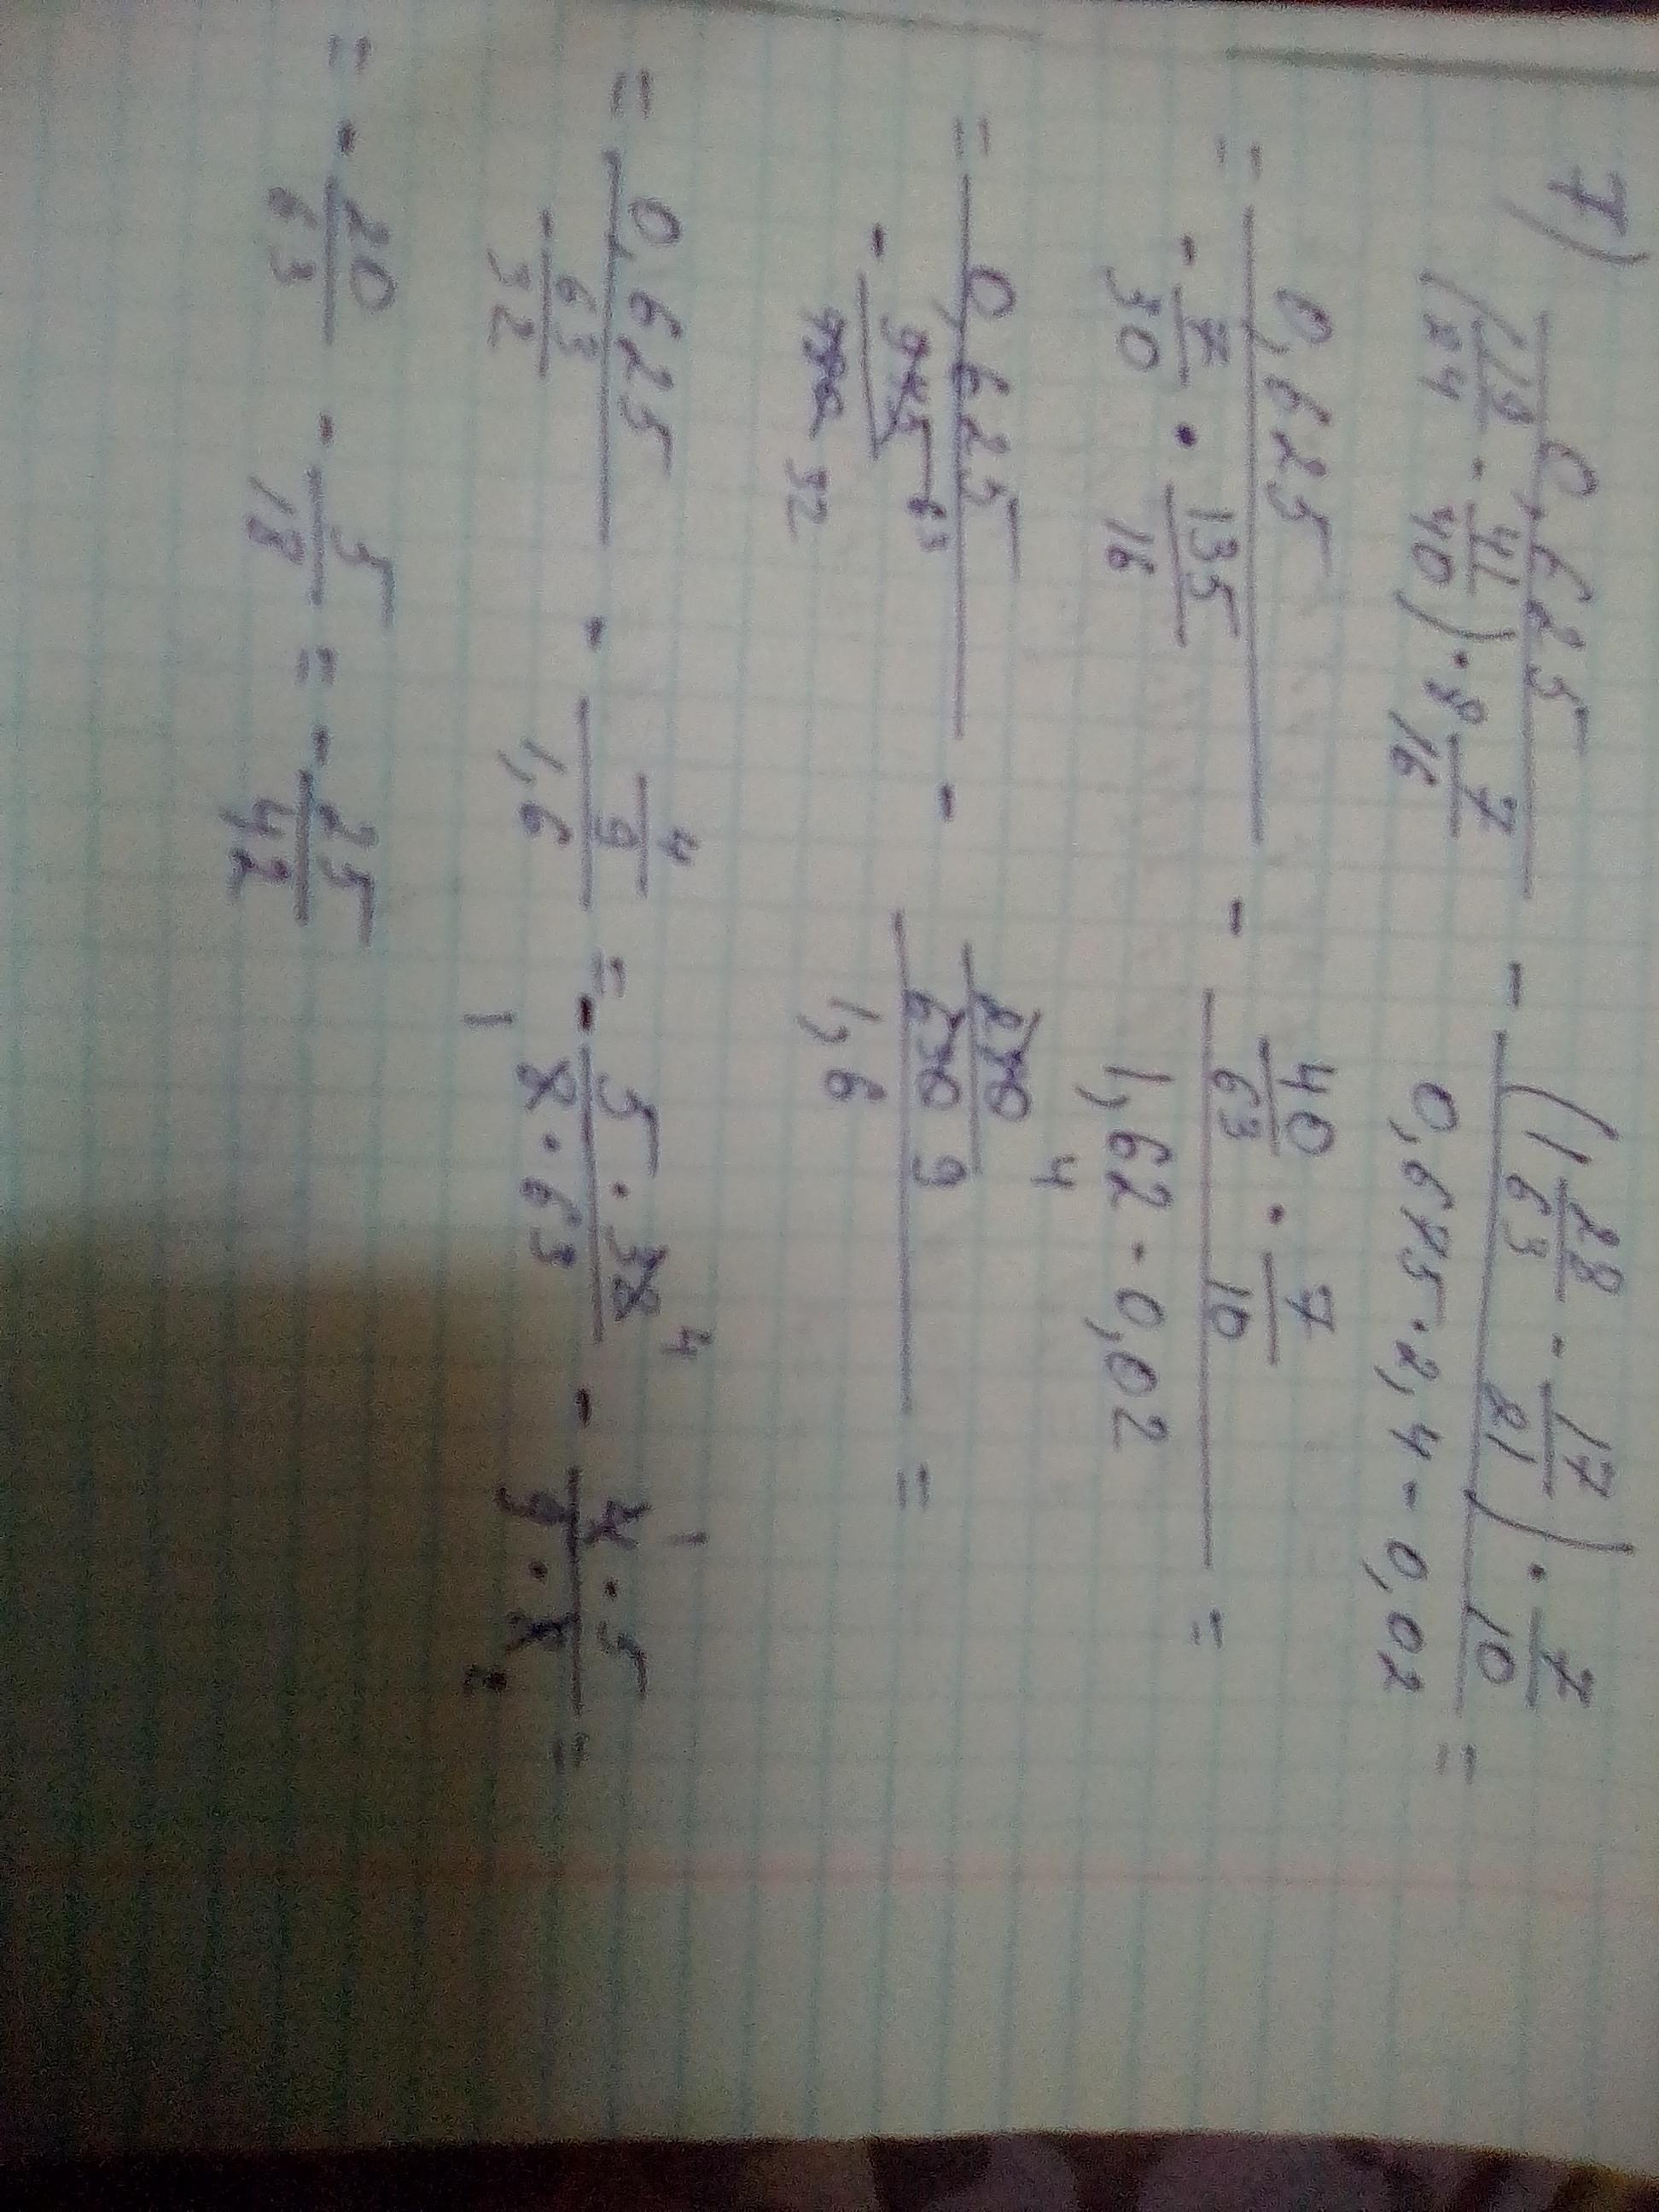 7) 0,625 / ((19/24 - 41/40) · 8 7/16) - ((1 28/63 - 17/21) · 7/10) / (0,675 · 2,4 - 0,02) =
= 0,625 / (- 7/30 · 135/16) - (40/63 · 7/10) / (1,62 - 0,02) =
= 0,625 / (- 945/480 63 32) - (280/630 4 9) / 1,6 =
= 0,625 / (- 63/32) - (4/9) / 1,6 = - (5 · 32 4) / (8 1 · 63) - (4 1 · 5) / (9 · 8 2) =
= - 20/63 - 5/18 = - 25/42